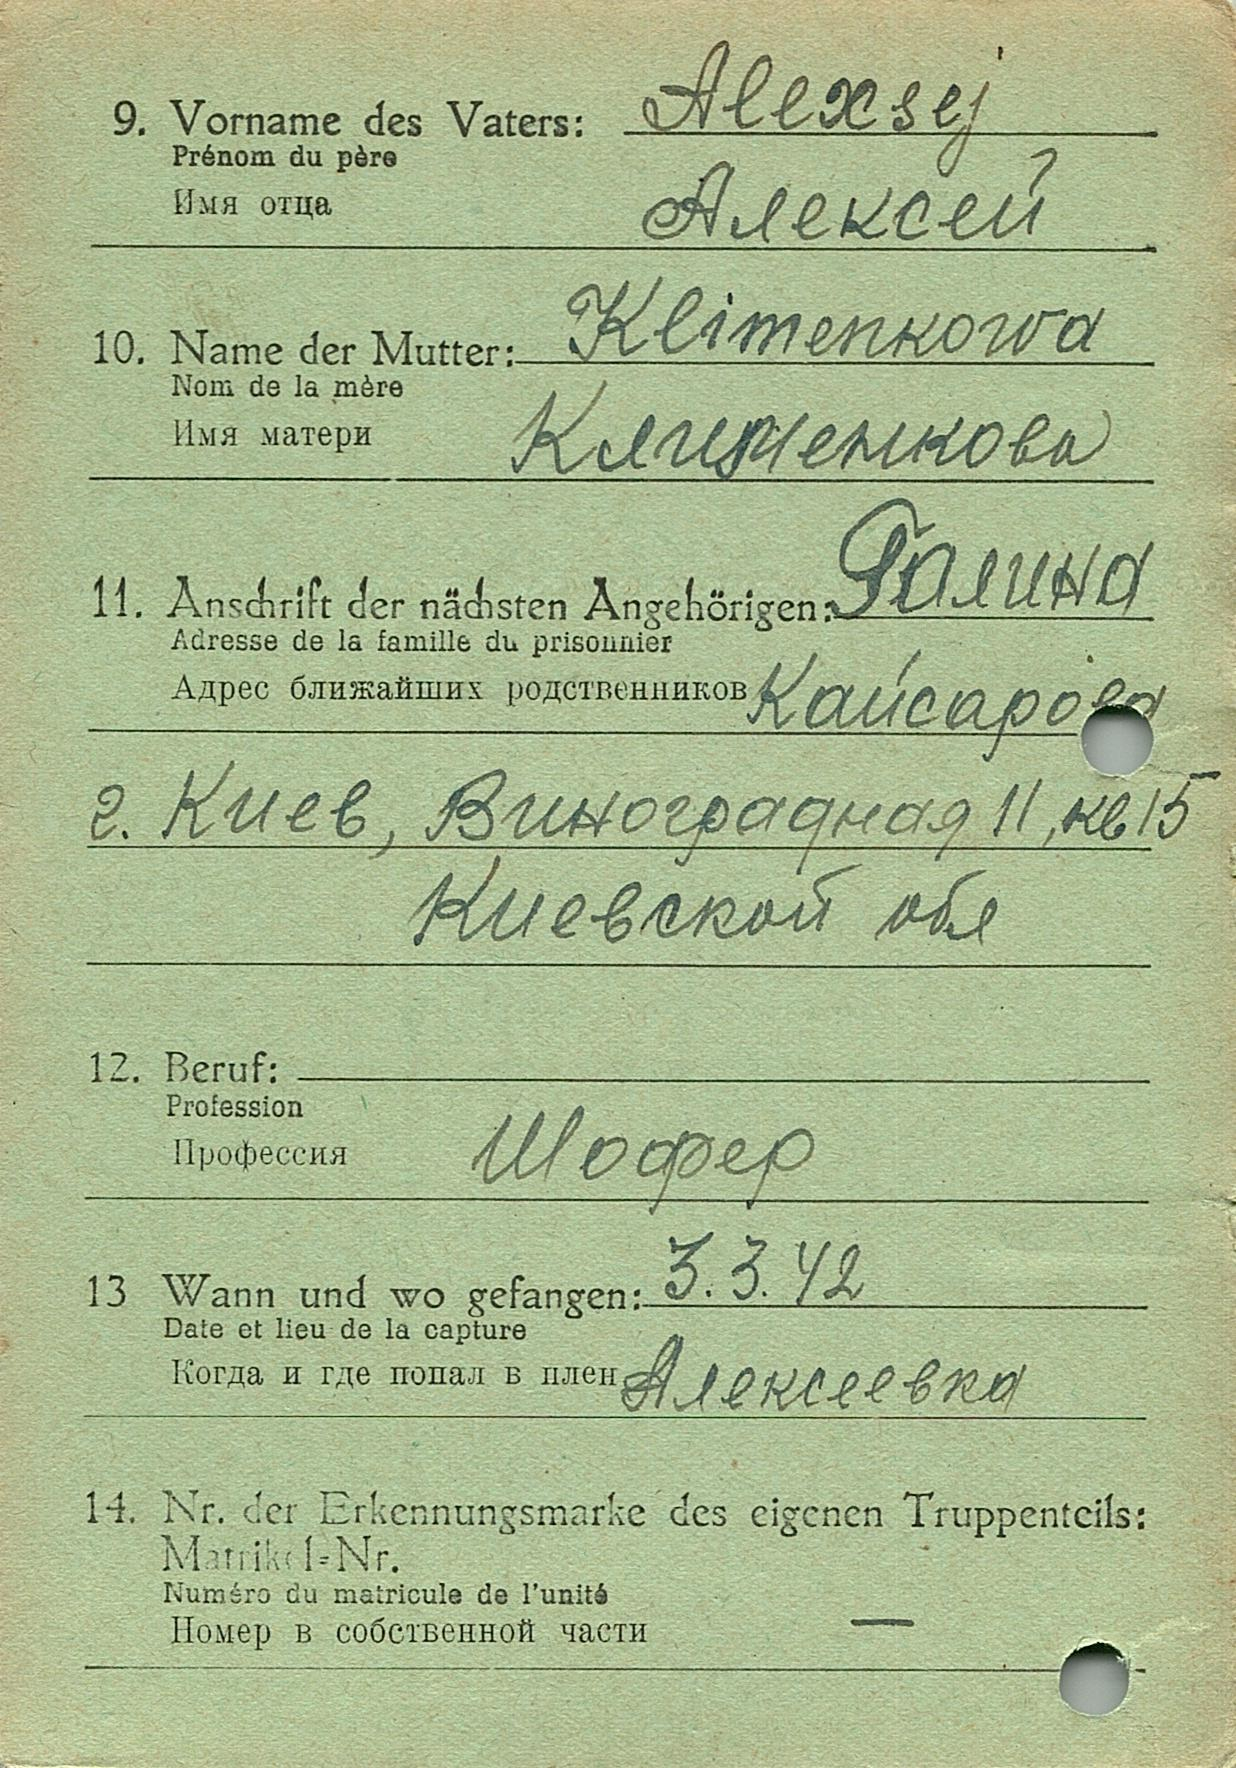 9. Vorname des Vaters: Alexsej
Prénom du père
Имя отца Алексей
10. Name der Mutter: Klimenkowa
Nom de la mère
Имя матери Клименкова
11. Anschrift der nächsten Angehörigen: Галина
Adresse de la famille du prisonnier
Адрес ближайших родственников Кайсарова
г. Киев, Виноградная 11, кв 15
Киевской обл
12. Beruf:
Profession
Профессия Шофер
13 Wann und wo gefangen: 3.3.42
Date et lieu de la capture
Когда и где попал в плен Алексеевка
14. Nr. der Erkennungsmarke des eigenen Truppenteils:
Matrikel-Nr.
Numéro du matricule de l'unité
Номер в собственной части —